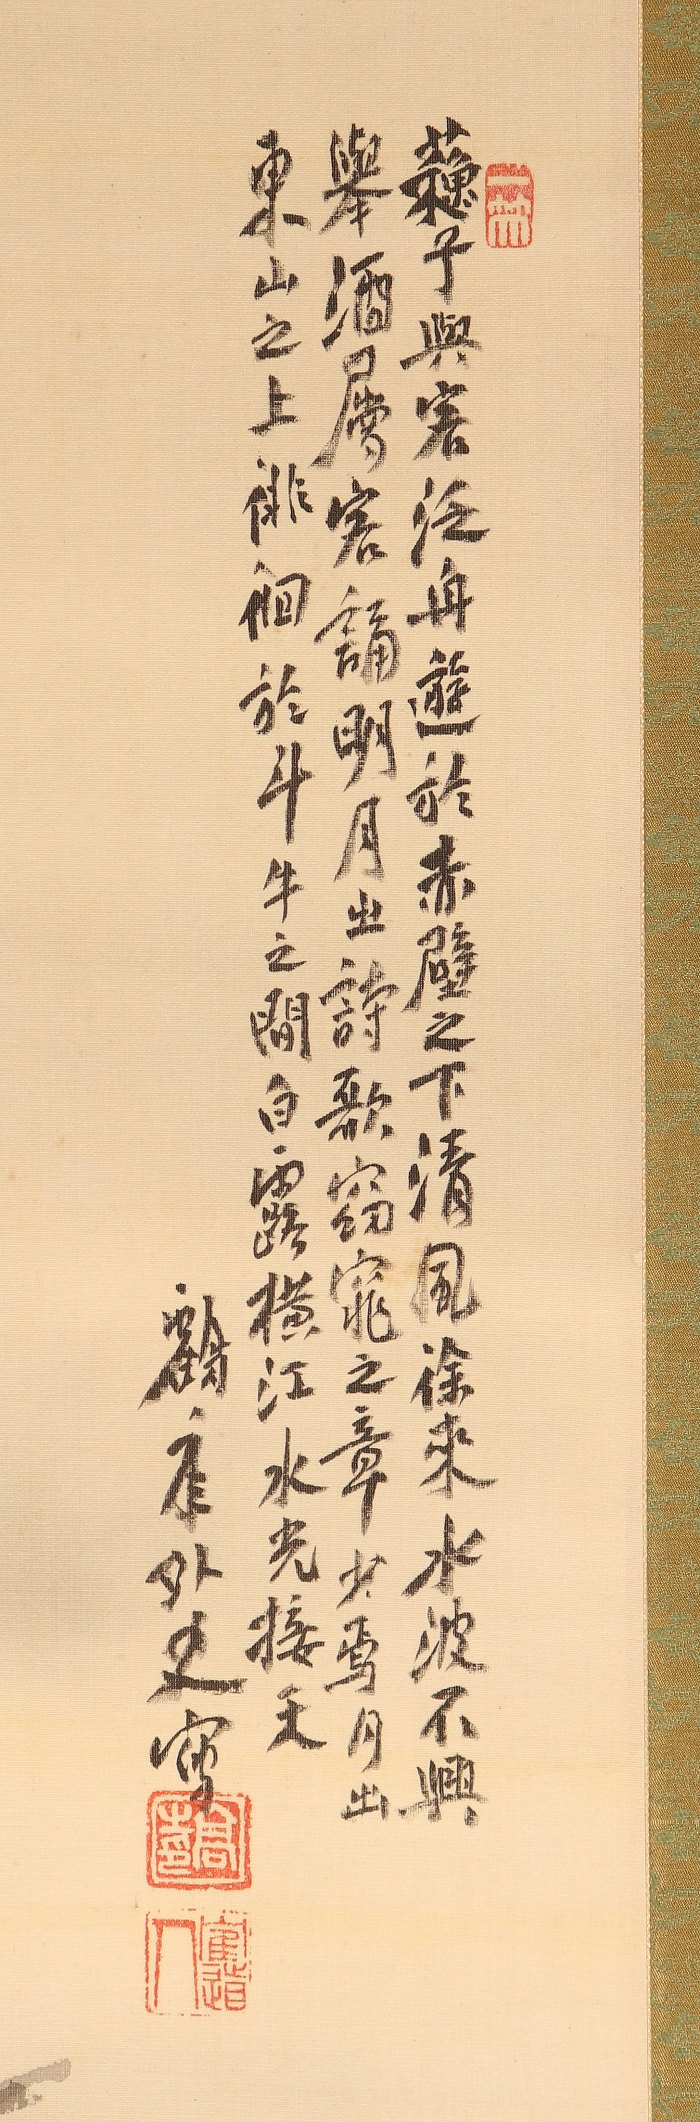 蘇子與客泛舟遊於赤壁之下清風徐來水波不興
舉酒屬客誦明月之詩歌窈窕之章少焉月出
東山之上徘徊於斗牛之間白露橫江水光接天
外史寫